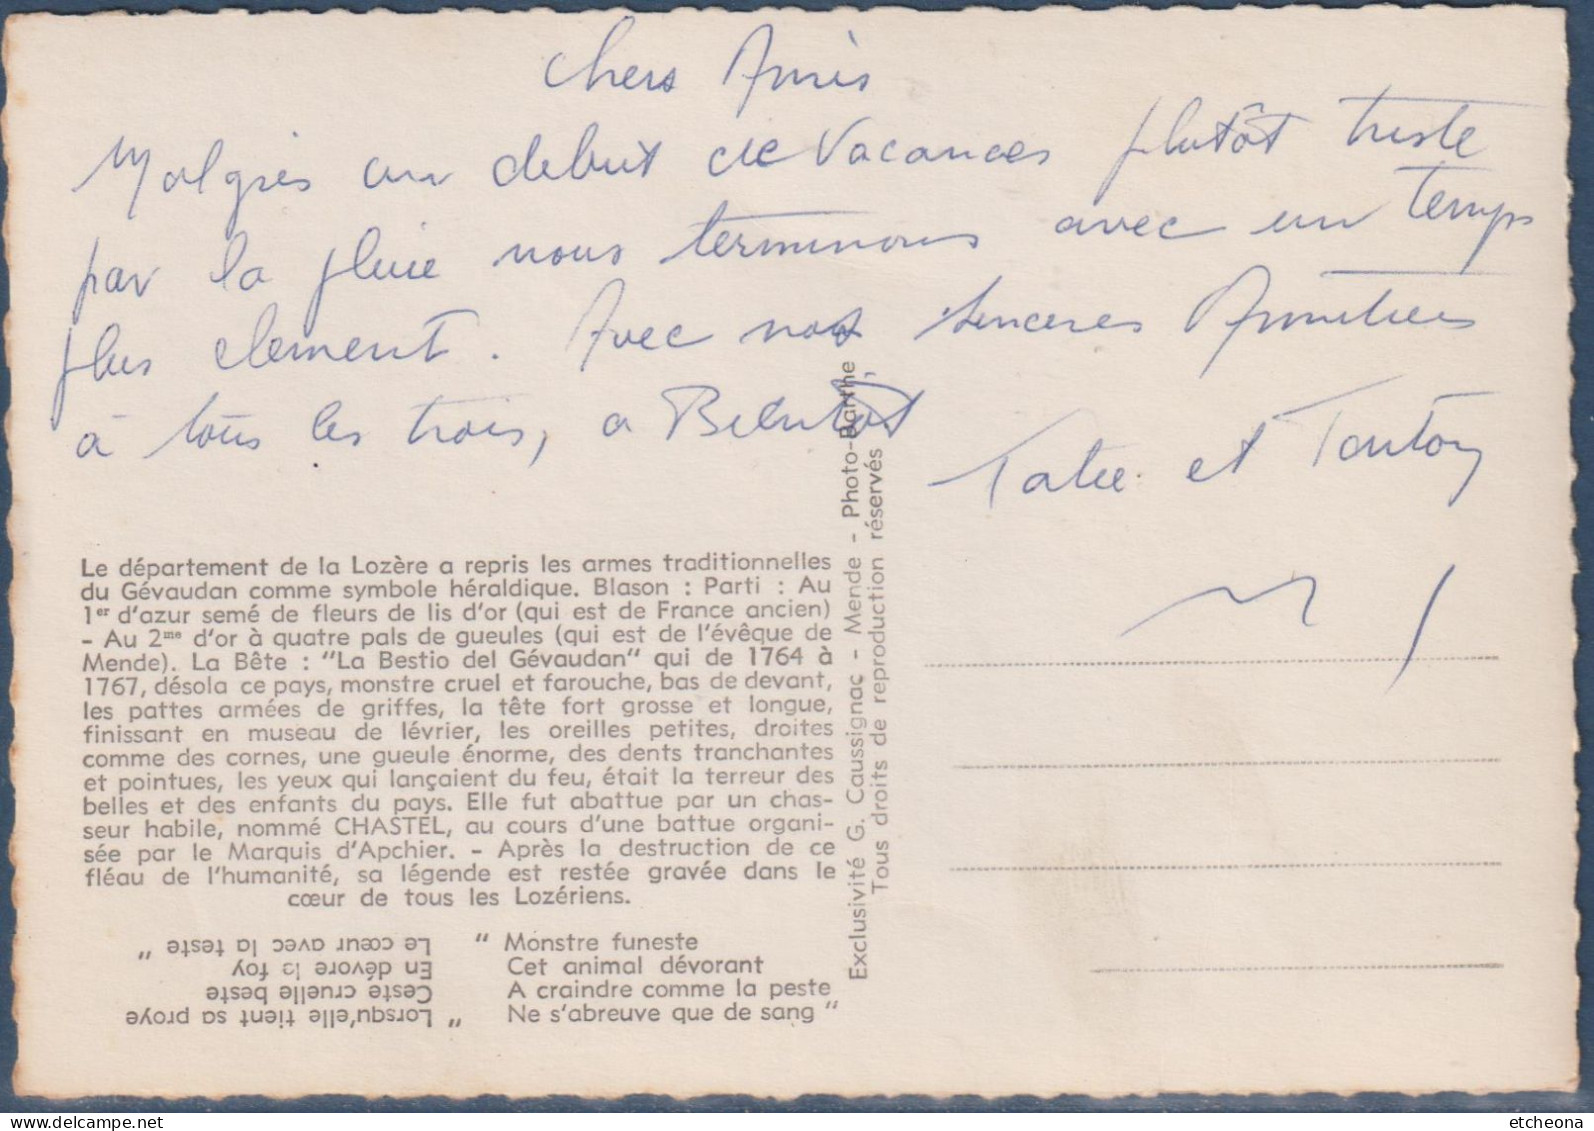 Chers Amis
Malgrés un debut de Vacances plutôt triste
par la pluie nous terminons avec un temps
plus clement. Avec nos sinceres Amitiees
à tous les trois, a Bientôt
Tatie et Tonton
Le département de la Lozère a repris les armes traditionnelles
du Gévaudan comme symbole héraldique. Blason : Parti : Au
1er d'azur semé de fleurs de lis d'or (qui est de France ancien)
- Au 2me d'or à quatre pals de gueules (qui est de l'évêque de
Mende). La Bête : "La Bestio del Gévaudan" qui de 1764 à
1767, désola ce pays, monstre cruel et farouche, bas de devant,
les pattes armées de griffes, la tête fort grosse et longue,
finissant en museau de lévrier, les oreilles petites, droites
comme des cornes, une gueule énorme, des dents tranchantes
et pointues, les yeux qui lançaient du feu, était la terreur des
belles et des enfants du pays. Elle fut abattue par un chas-
seur habile, nommé CHASTEL, au cours d'une battue organi-
sée par le Marquis d'Apchier. - Après la destruction de ce
fléau de l'humanité, sa légende est restée gravée dans le
cœur de tous les Lozériens.
" Monstre funeste
Cet animal dévorant
A craindre comme la peste
Ne s'abreuve que de sang "
" Lorsqu'elle tient sa proye
Ceste cruelle beste
En dévore la foy
Le cœur avec la teste "
Exclusivité G. Caussignac - Mende - Photo-Barthe
Tous droits de reproduction réservés
etcheona